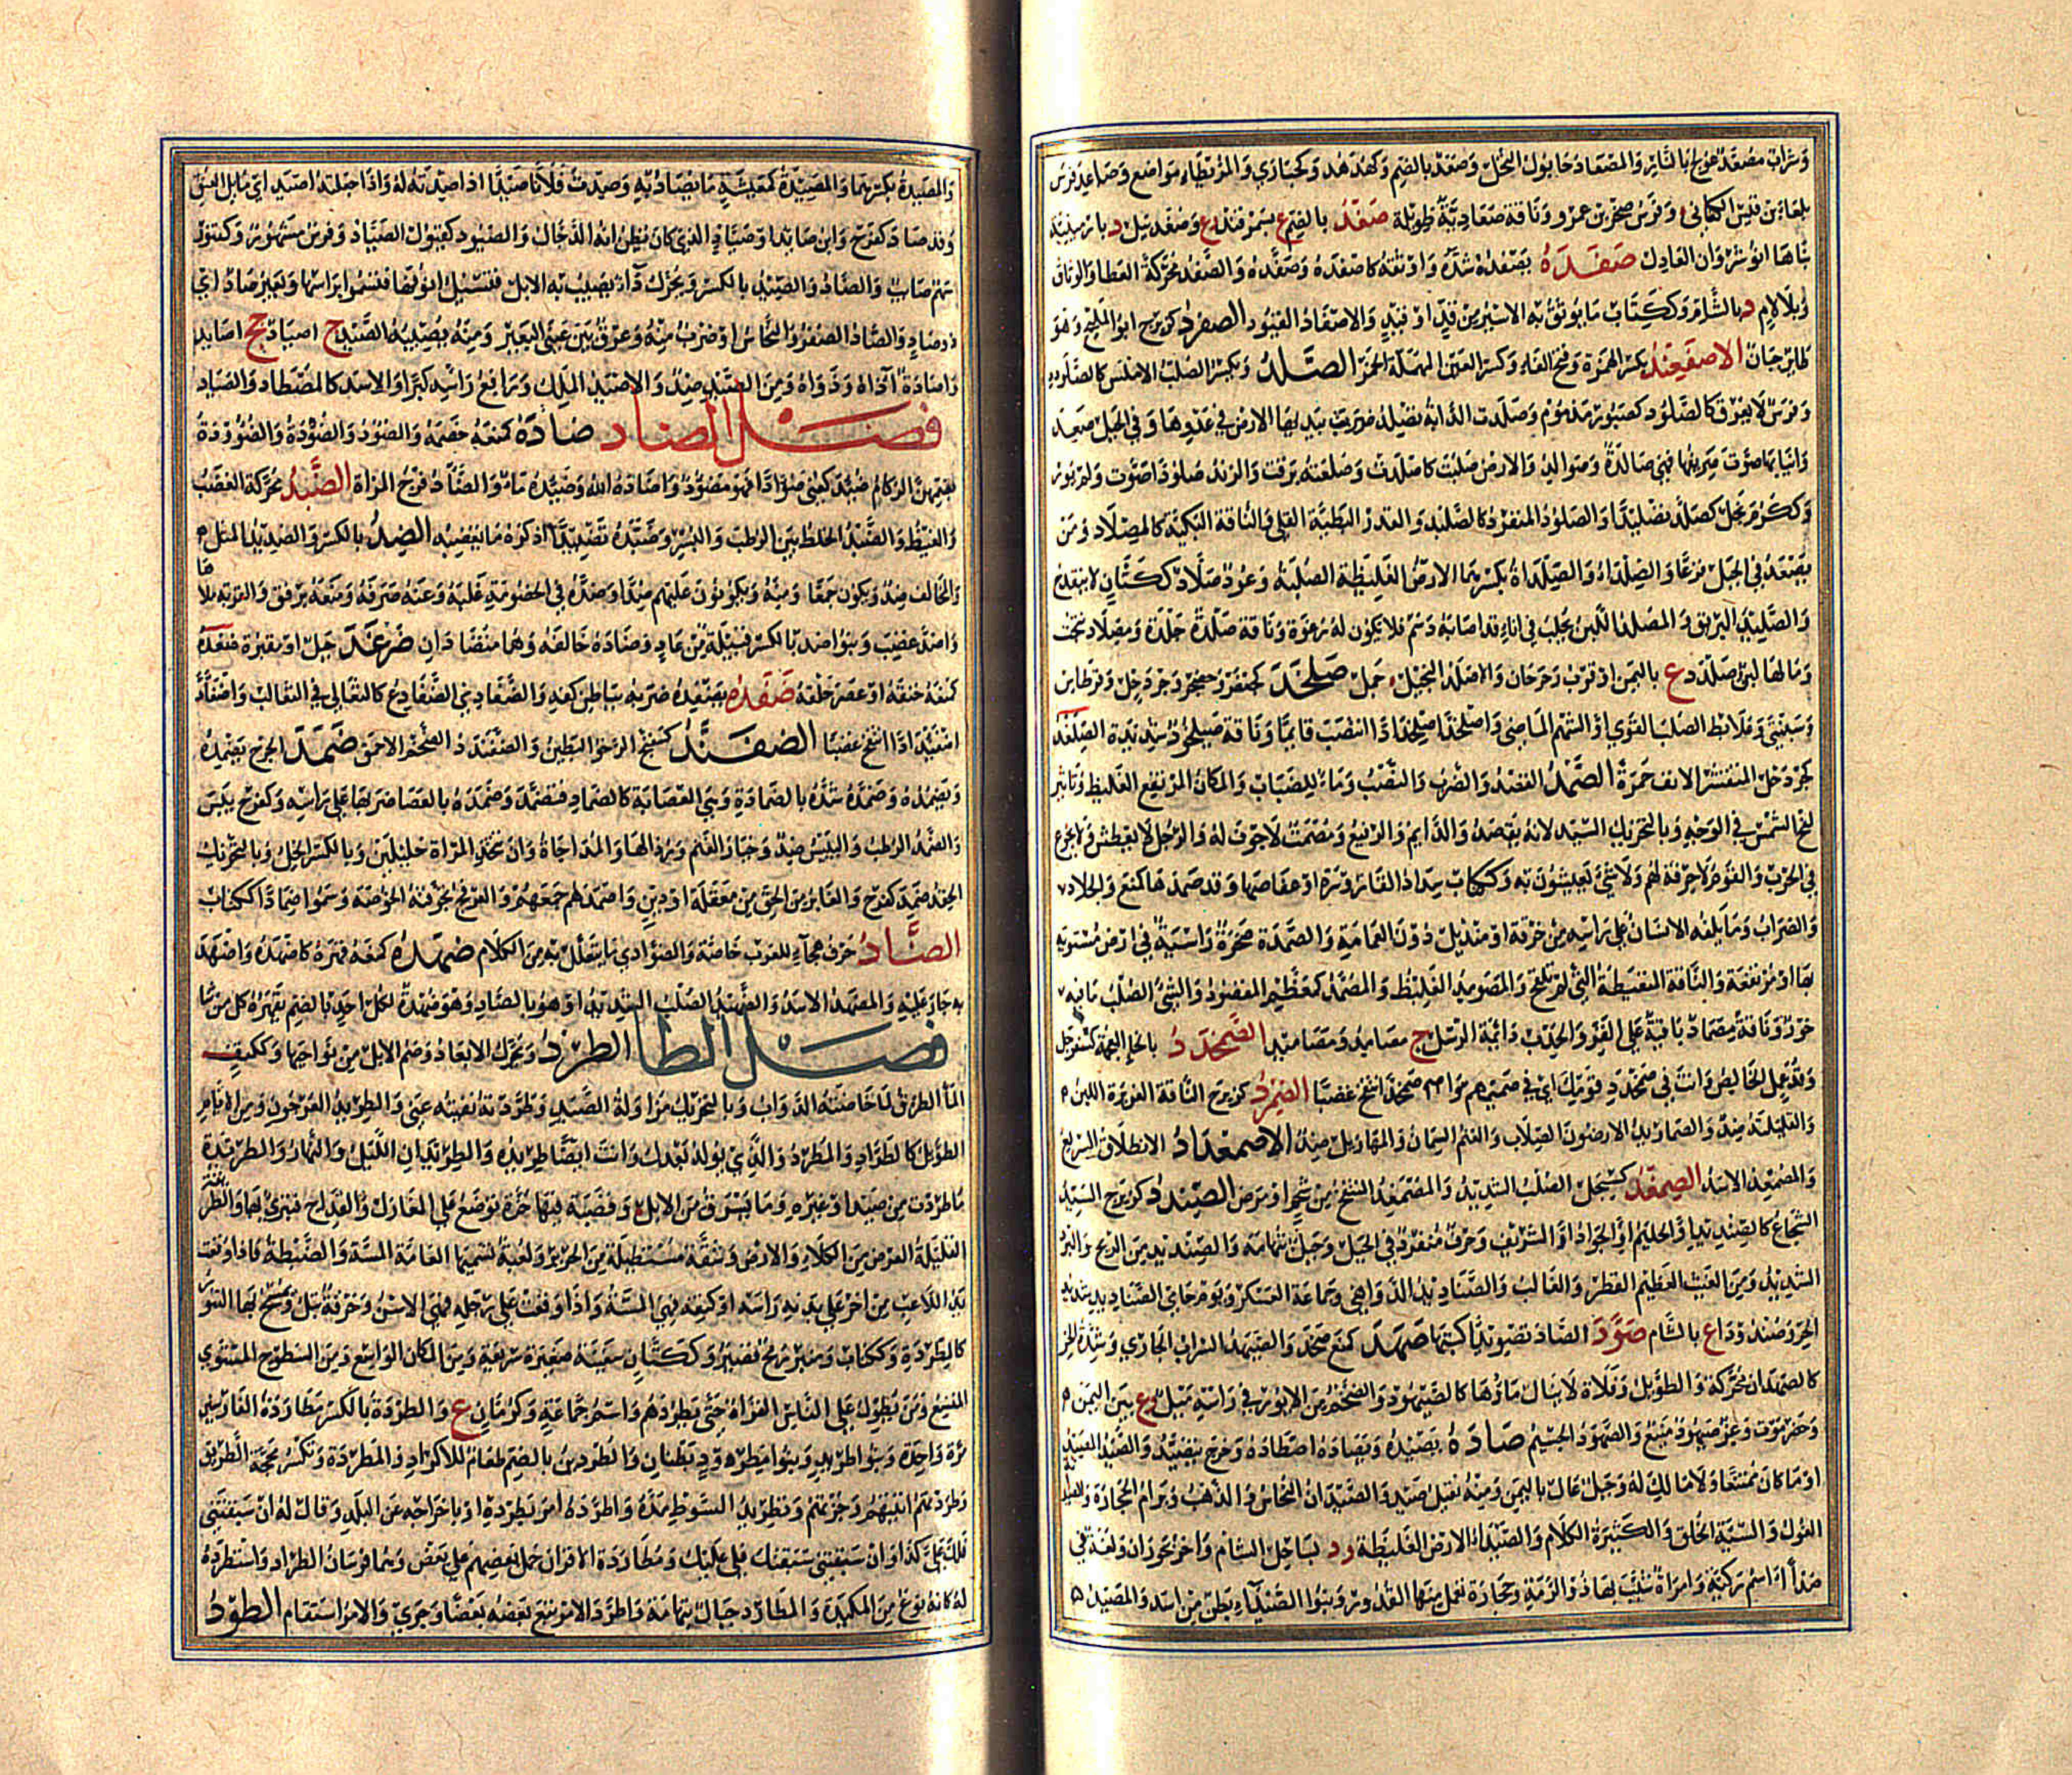 وشراب مصعد عولج بالنار والمصعاد حابول النخل وصعد بالضم وكهدهد وكحبارى والمريطاء مواضع وصاعد فرس
بلعاء بن قيس الكناني وفرس صخر بن عمرو وناقة صعادية طويلة صغد بالضم ع بسمرقند ع وصغدبيل د بارمينية
بناها انوشروان العادل صفده يصفده شده واوثقه كاصفده وصفده والصفد محركة العطاء والوثاق
وبلا لام د بالشام وككتاب ما يوثق به الاسير من قد او قيد والاصفاد القيود الصفرد كزبرج ابو المليح وهو
طائر جبان الاصفعند بكسر الهمزة وفتح الفاء وكسر العين المهملة الخمر الصلد ويكسر الصلب الاملس كالصلود
وفرس لا يعرق كالصلود كصبور مذموم وصلدت الدابة تصلد ضربت بيديها الارض في عدوها وفي الجبل صعد
وانيابها صوت صريفها فهي صالدة وصوالد والارض صلبت كاصلدت وصلعته برقت والزند صلودا صوت ولم يور
وككرم بخل كصلد تصليدا والصلود المنفرد كالصلد والقدر البطيئة الغلي والناقة البكيئة كالمصلاد ومن
يصعد في الجبل فزعا والصلداء والصلداءة بكسرهما الارض الغليظة الصلبة وعود صلاد ككتان لا ينقدح
والصليد البريق والمصلد اللبن يحلب في اناء قد اصابه دسم فلا يكون له رغوة وناقة صلدة جلدة ومصلاد نتجت
وما لها لبن صلدد ع باليمن او قرب رحرحان والاصلد البخيل جمل صلخد كجعفر وحضجر وجردحل وقرطاس
وسبنتى وعلابط الصلب القوي او الشهم الماضي واصلخد اصلخدادا انتصب قائما وناقة صيلخود شديدة الصلغد
كجردحل المتقشر الانف حمرة الصمد القصد والضرب والنصب وماء للضباب والمكان المرتفع الغليظ وتاثير
لفح الشمس في الوجه وبالتحريك السيد لانه يقصد والدائم والرفيع ومصمت لا جوف له والرجل لا يعطش ولا يجوع
في الحرب والقوم لا حرفة لهم ولا شئ يعيشون به وككتاب سداد القارورة او عفاصها وقد صمدها كمنع والجلاد
والضراب وما يلفه الانسان على راسه من خرقة او منديل دون العمامة والصمدة صخرة راسية في ارض مستوية
بها او مرتفعة والناقة المتعيطة التي لم تلقح والمصومد الغليظ والمصمد كمعظم المقصود والشئ الصلب ما فيه
خور وناقة مصماد باقية على القر والجدب دائمة الرسل ج مصامد ومصاميد الصمخدد بالخاء المعجمة كسفرجل
وقذعمل الخالص وانت في صمخدد قومك اي في صميمهم واصمخد انتفخ غضبا الصمرد كزبرج الناقة الغزيرة اللبن
والقليلته ضد والصمارد الارضون الصلاب والغنم السمان والمهازيل ضد الاصمعداد الانطلاق السريع
والمصمعد الاسد الصمغد كسجل الصلب الشديد والمصمغد المنتفخ من شحم او مرض الصندد كزبرج السيد
الشجاع كالصنديد او الحليم او الجواد او الشريف وحرف منفرد في الجبل وجبل بتهامة والصنديد من الريح والبرد
الشديد ومن الغيث العظيم القطر والغالب والصناديد الدواهي وجماعة العسكر ويوم حامي الصناديد شديد
الحر وصندوداء ع بالشام صود الصاد تصويدا كتبها صهد كمنع صخد والصيهد السراب الجاري وشدة الحر
كالصهدان محركة والطويل وفلاة لا ينال ماؤها كالصيهود والضخم من الايور في راسه ميل وع بين اليمن
وحضرموت وعز صيهود منيع والصهود الجسيم صاده يصيده ويصاده اصطاده وخرج يتصيد والصيد المصيد
او ما كان ممتنعا ولا مالك له وجبل عال باليمن ومنه نقيل صيد والصيدان النحاس والذهب وبرام الحجارة والصيد
الغول والسيئة الخلق والكثيرة الكلام والصيداء الارض الغليظة ود بساحل الشام واخر بحوران ولغة في
صداء او اسم ركية وامراة شبب بها ذو الرمة وحجارة تعمل منها القدور وبنو الصيداء بطن من اسد والمصيد
والمصيدة بكسرهما والمصيدة كمعيشة ما يصاد به وصدت فلانا صيدا اذا صدته له واذا جعلته اصيد اي مائل العنق
وقد صاد كفرح وابن صائد او صياد الذي كان يظن انه الدجال والصيود كقبول الصياد وفرس مشهور وكتنور
سهم صائب والصاد والصيد بالكسر ويحرك داء يصيب الابل فتسيل انوفها فتسمو براسها وبعير صاد اي
ذو صاد والصاد الصفر والنحاس او ضرب منه وعرق بين عيني البعير ومنه يصيبه الصيد ج اصياد جج اصايد
واصاده آذاه وداواه ومن الصيد ضد والاصيد الملك ورافع راسه كبرا والاسد كالمصطاد والصياد
فصل الضاد ضاده كمنعه خصمه والضود والضودة والضوودة
بضمهن الزكام ضئد كعني ضؤدا فهو مضؤود واضاده الله وضئيدة ماء والضاد فرج المراة الضبد محركة الغضب
والغيظ والضبد الخلط بين الرطب والبسر وضبده تضبيدا اذكره ما يغضبه الضد بالكسر والضديد المثل
والمخالف ضد ويكون جمعا ومنه ويكونون عليهم ضدا وضده في الخصومة غلبه وعنه صرفه ومنعه برفق والقربة ملاها
واضد غضب وبنو ضد بالكسر قبيلة من عاد وضاده خالفه وهما متضادان ضرغد جبل او مقبرة ضغده
كمنعه خنقه او عصر حلقه ضفده يضفده ضربه بباطن كفه والضفادي في الضفادع كالثعالي في الثعالب واضفاد
اضفئدادا انتفخ غضبا الضفندد كسفنج الرخو البطين والضفندد الضخم الاحمق ضمد الجرح يضمده
ويضمده وضمده شده بالضمادة وهي العصابة كالضماد فتضمد وضمده بالعصا ضربه بها على راسه وكفرح يبس
والضمد الرطب واليبيس ضد وخيار الغنم ورذالها والمداجاة وان تتخذ المراة خليلين وبالكسر الخل وبالتحريك
الحقد ضمد كفرح والغابر من الحق من معقلة او دين واضمدهم جمعهم والعرفج تجوفته الخوصة وسموا ضمادا ككتاب
الضاد حرف هجاء للعرب خاصة والضوادي ما يتعلل به من الكلام ضهده كمنعه قهره كاضهده واضطهده
به جار عليه والمضطهد الاسد والضهيد الصلب الشديد او هو بالصاد وهو ضهدة لكل احد بالضم يقهره كل من شاء
فصل الطا الطرد ويحرك الابعاد وضم الابل من نواحيها وككتف
الماء الطرق لما خاضته الدواب وبالتحريك مزاولة الصيد وطردته نفيته عني والطريد العرجون ومن الايام
الطويل كالطراد والمطرد والذي يولد بعدك وانت ايضا طريده والطريدان الليل والنهار والطريدة
ما طردت من صيد او غيره وما يسرق من الابل وقصبة فيها حزة توضع على المغازل والقداح فتبرى بها والطريقة
القليلة العرض من الكلاء والارض وشقة مستطيلة من الحرير ولعبة تسميها العامة المسة والضبطة فاذا وقعت
يد اللاعب من اخر على بدنه راسه او كتفه فهي المسة واذا وقعت على رجله فهي الاسن وخرقة تبل ويمسح بها التنور
كالمطردة وككتاب ومنبر رمح قصير وككتان سفينة صغيرة سريعة ومن المكان الواسع ومن السطوح المستوي
المتسع ومن يطول على الناس القراءة حتى يطردهم واسم جماعة وكرمان ع والطردة بالكسر مطاردة الفارسين
مرة واحدة وبنو طريد وبنو مطرود بطنان والطردين بالضم طعام للاكراد والمطردة وتكسر محجة الطريق
وطردتهم اتيتهم وجزتهم وتطريد السوط مده واطرده امر بطرده او باخراجه عن البلد وقال له ان سبقتني
فلك علي كذا وان سبقتك فلي عليك ومطاردة الاقران حمل بعضهم على بعض وهم فرسان الطراد واستطرد
له كانه نوع من المكيدة والمطارد جبال بتهامة واطرد الامر تبع بعضه بعضا وجرى والامر استقام الطود